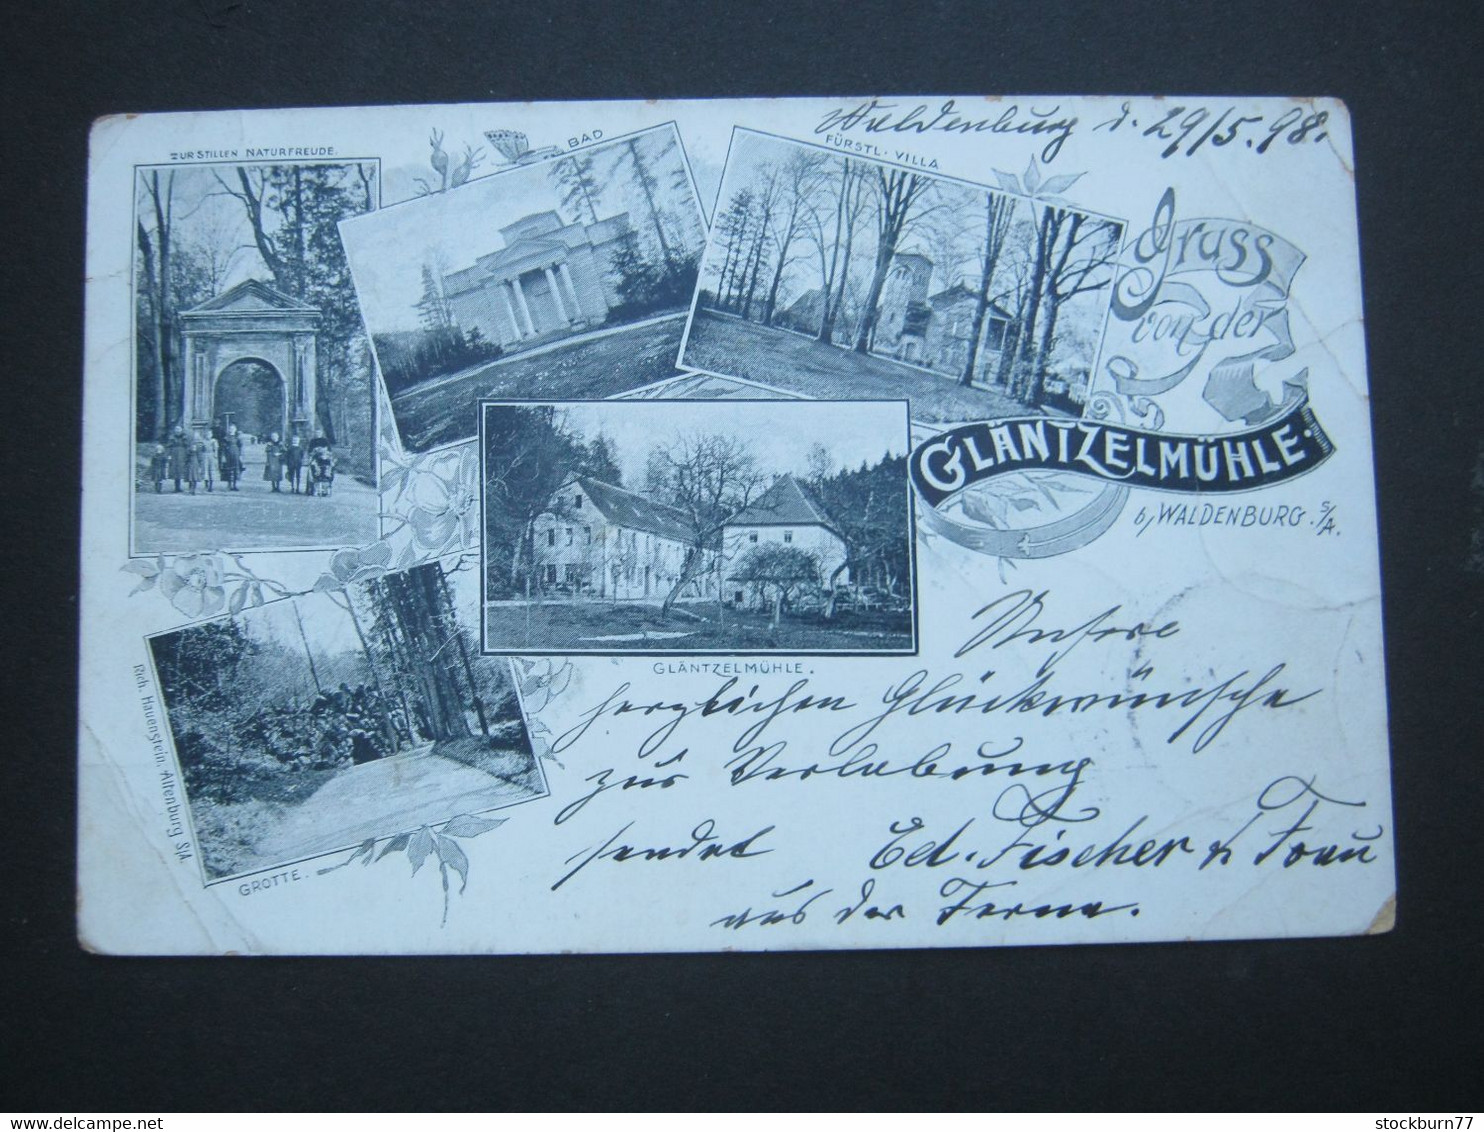 Waldenburg d. 29/5.98.
ZUR STILLEN NATURFREUDE.
BAD
FÜRSTL. VILLA
Gruss
von der
GLÄNTZELMÜHLE.
b, WALDENBURG. S/A.
GLÄNTZELMÜHLE.
GROTTE.
Rich. Hauenstein, Altenburg S/A.
Unsere
herzlichen Glückwünsche
zur Verlobung
sendet Ed. Fischer u Frau
aus der Ferne.
stockburn77